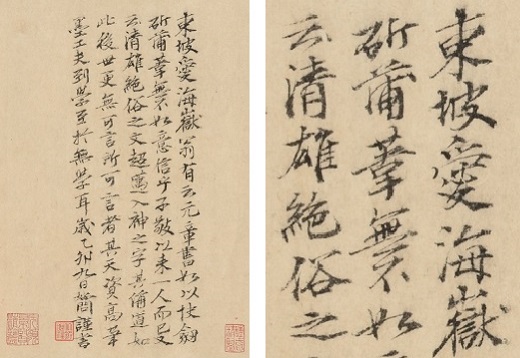 東坡愛海嶽翁有云元章書如以快劍
斫蒲葦無不如意信乎子敬以来一人而已又
云清雄絕俗之文超邁入神之字其備道如
此後世更無可言所可言者其天資高筆
墨工夫到學至於無學耳歲乙卯九日謹書
東坡愛海嶽
斫蒲葦無不如
云清雄絕俗之